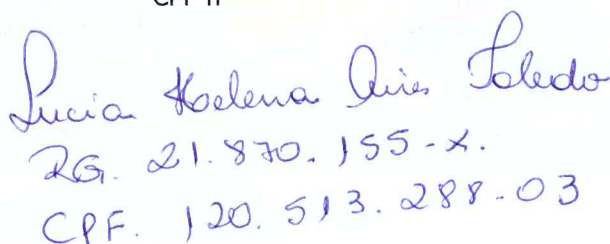 Lucia Helena Aires Toledo
RG. 21.870.155-X.
CPF. 120.513.288-03